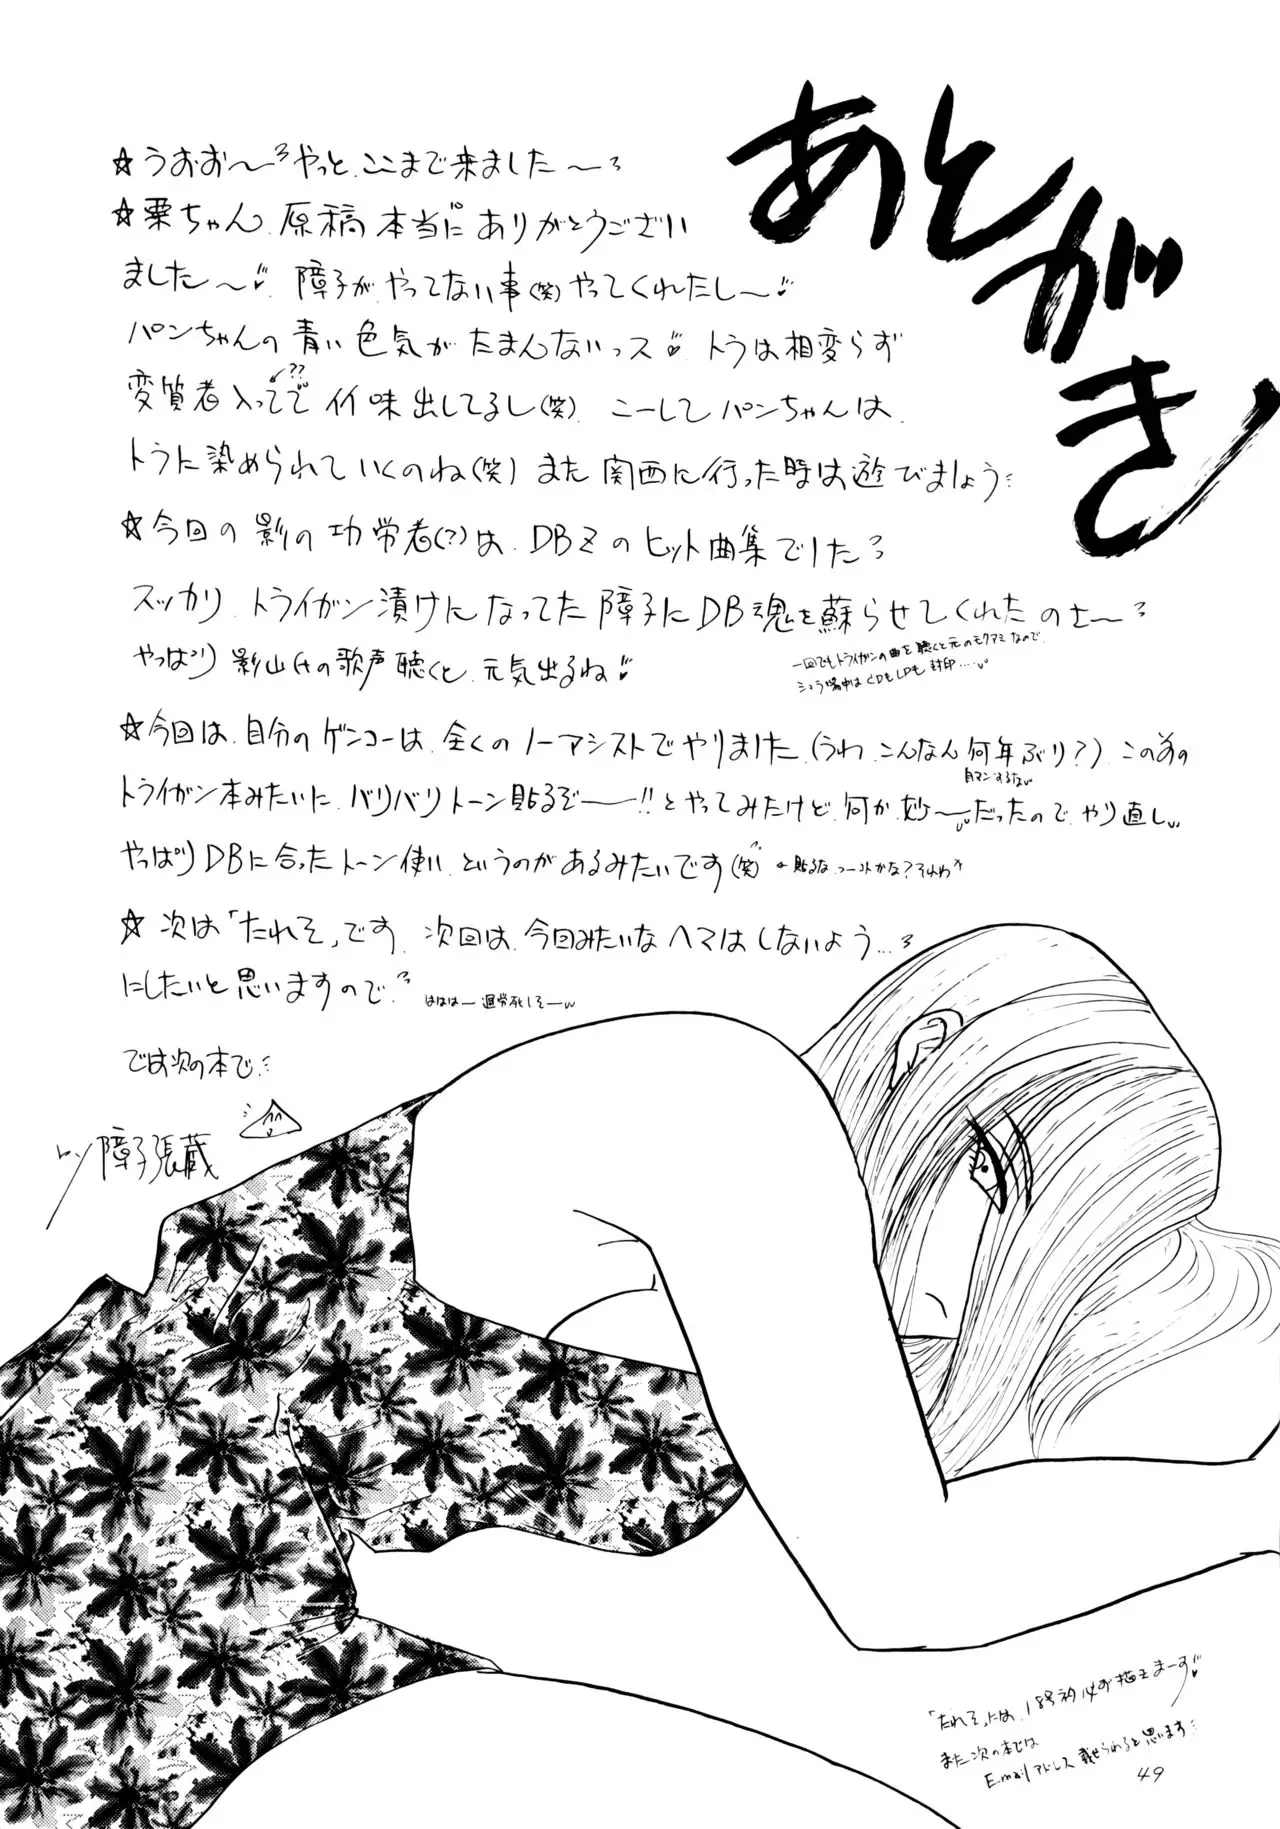 あとがき
☆うおお〜やっと、ここまで来ました〜
☆栗ちゃん、原稿本当にありがとうござい
ました〜 障子がやってない事(笑)やってくれたし〜
パンちゃんの青い色気がたまんないっス トラは相変らず
??
変質者入ってでイイ味出してるし(笑) こーしてパンちゃんは、
トラに染められていくのね(笑) また関西に行った時は遊びましょう
☆今回の影の功労者(?)は、DBZのヒット曲集でした
スッカリ、トライガン漬けになってた障子にDB魂を蘇らせてくれたのさ〜
やっぱり影山氏の歌声聴くと、元気出るね
一回でもトライガンの曲を聴くと元のモクアミなので、
シュラ場中はCDもLPも封印…
☆今回は、自分のゲンコーは、全くのノーアシストでやりました(うわ、こんなん何年ぶり?) この前の
自マンするない
トライガン本みたいに、バリバリトーン貼るぞーー!!とやってみたけど、何か妙〜だったので、やり直し
やっぱりDBに合ったトーン使い、というのがあるみたいです(笑)
☆次は「たれそ」です。次回は、今回みたいなヘマはしないよう…
にしたいと思いますので、
はははー過労死しそー
では次の本で
障子張蔵
「たれそ」には、18号ネタ必ず描きまーす
また次の本では
E-mailアドレス載せられると思います
49